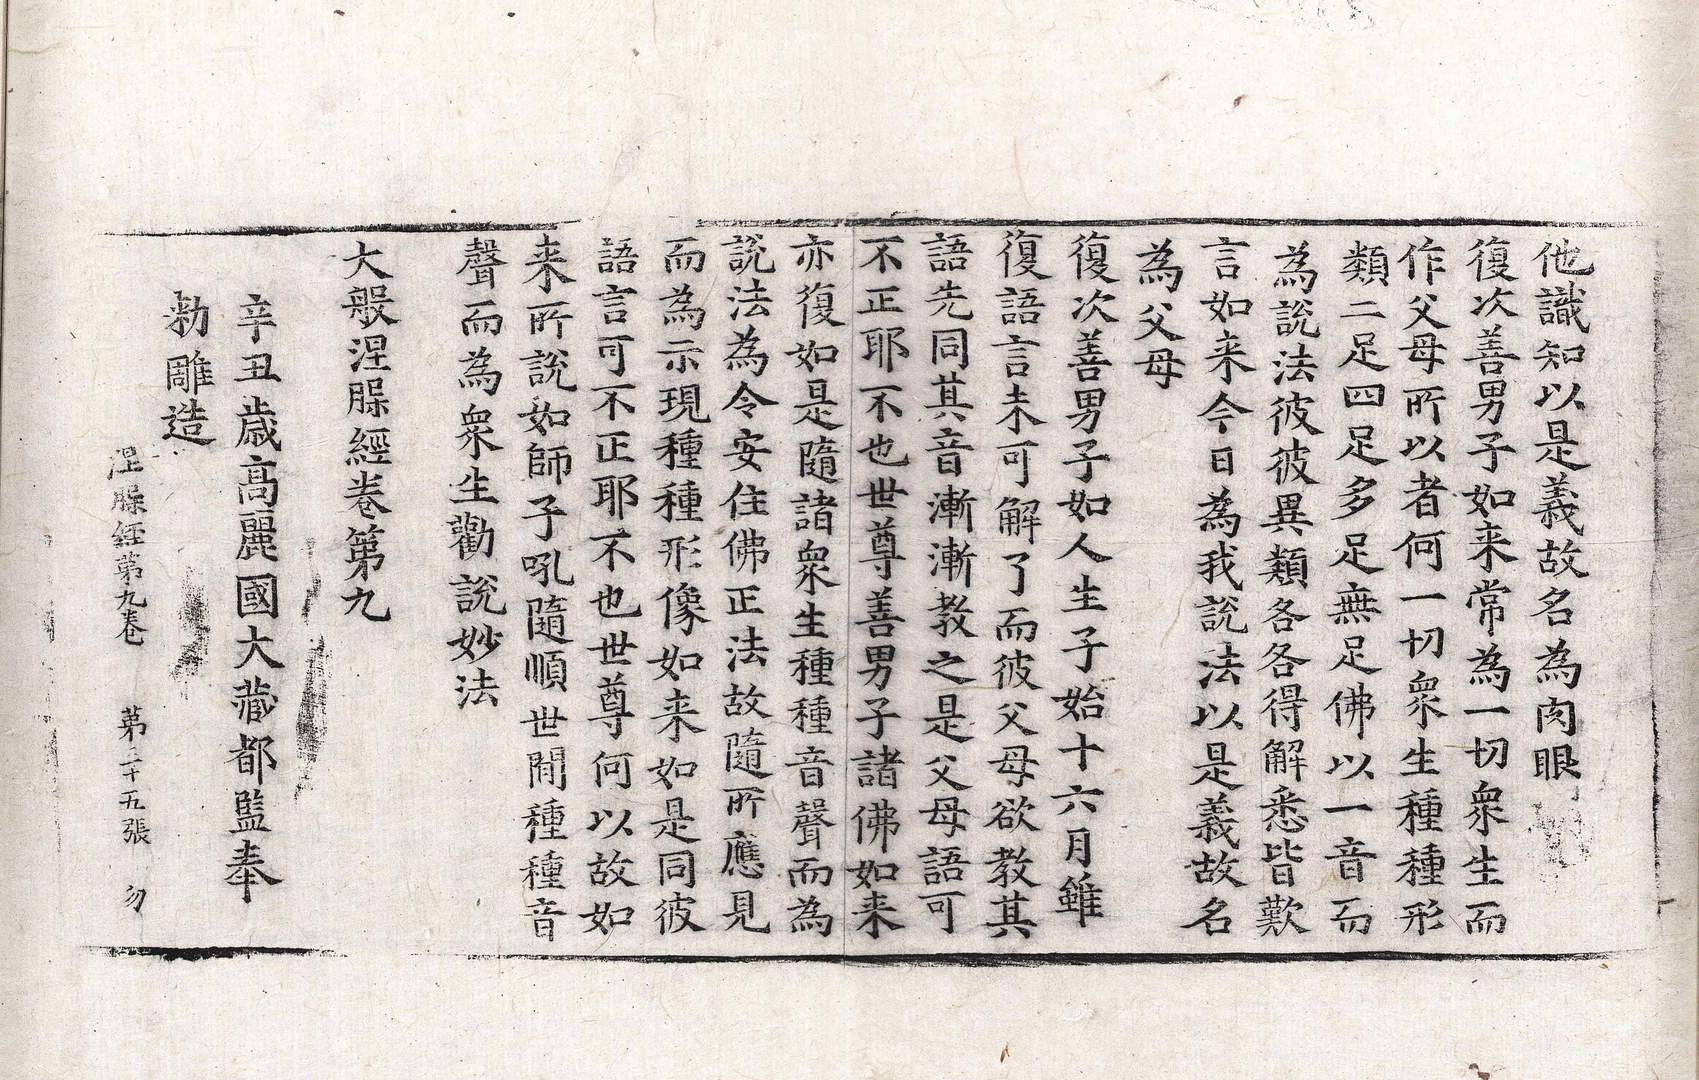 他識知以是義故名為肉眼
復次善男子如来常為一切衆生而
作父母所以者何一切衆生種種形
類二足四足多足無足佛以一音而
為說法彼彼異類各各得解悉皆歎
言如来今日為我説法以是義故名
為父母
復次善男子如人生子始十六月雖
復語言未可解了而彼父母欲教其
語先同其音漸漸教之是父母語可
不正耶不也世尊善男子諸佛如来
亦復如是隨諸衆生種種音聲而為
説法為令安住佛正法故隨所應見
而為示現種種形像如来如是同彼
語言可不正耶不也世尊何以故如
来所説如師子吼隨順世間種種音
聲而為衆生勸説妙法
大般涅脲經卷第九
辛丑歲高麗國大藏都監奉
勑雕造
涅脲経第九卷 第三十五張 勿